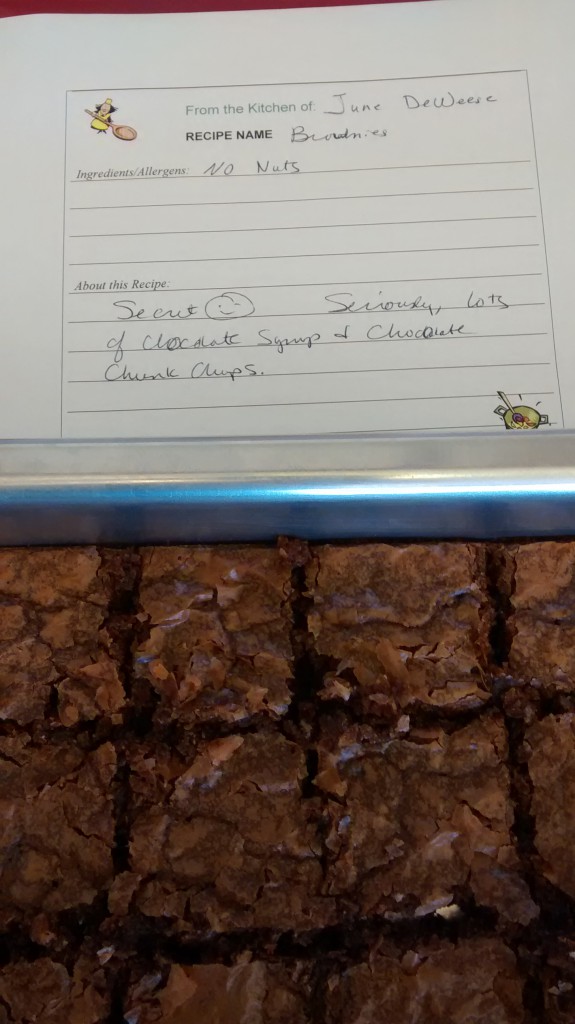 From the Kitchen of: June DeWeese
RECIPE NAME Brownies
Ingredients/Allergens: NO Nuts
About this Recipe:
Secret Seriously, lots
of chocolate Syrup & Chocolate
Chunk Chips.